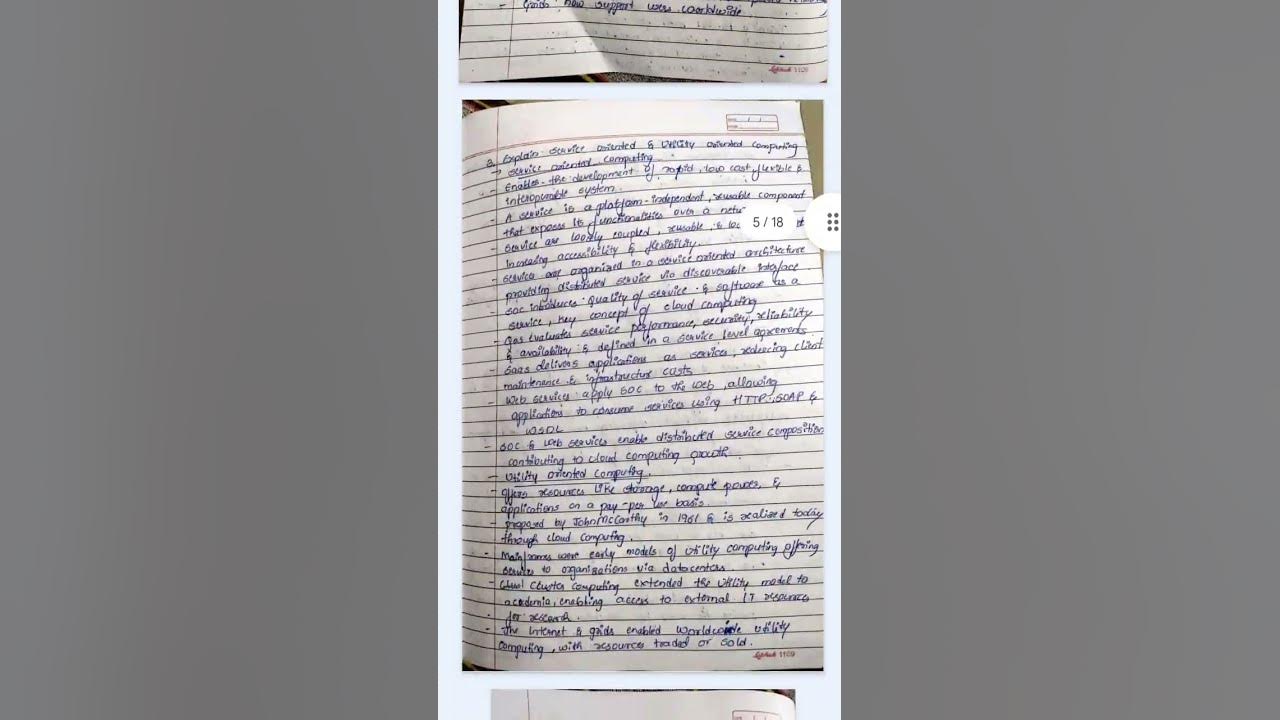 - Grids now support users worldwide
Q. Explain service oriented & Utility oriented computing
→ service oriented computing
- Enables the development of rapid, low cost, flexible &
interoperable system.
- A service is a platform-independent, reusable component
that exposes its functionalities over a
5 / 18
- Service are loosely coupled, reusable, &
increasing accessibility & flexibility.
- services are organized in a service oriented architecture
providing distributed service via discoverable interface.
- SOC introduces quality of service & software as a
service, key concept of cloud computing
- Qos evaluates service performance, security, reliability
& availability & defined in a service level agreements
- Saas delivers applications as services, reducing client
maintenance & infrastructure costs
- Web services apply SOC to the web, allowing
applications to consume services using HTTP, SOAP &
WSDL
- SOC & web services enable distributed service composition
contributing to cloud computing growth.
- Utility oriented computing.
- offers resources like storage, compute power, &
applications on a pay-per use basis.
- proposed by John McCarthy in 1961 & is realized today
through cloud computing.
- Mainframes were early models of utility computing offering
service to organizations via datacenters.
- Cluster computing extended the utility model to
academia, enabling access to external IT resources
for research.
- The internet & grids enabled worldwide utility
computing, with resources traded or sold.